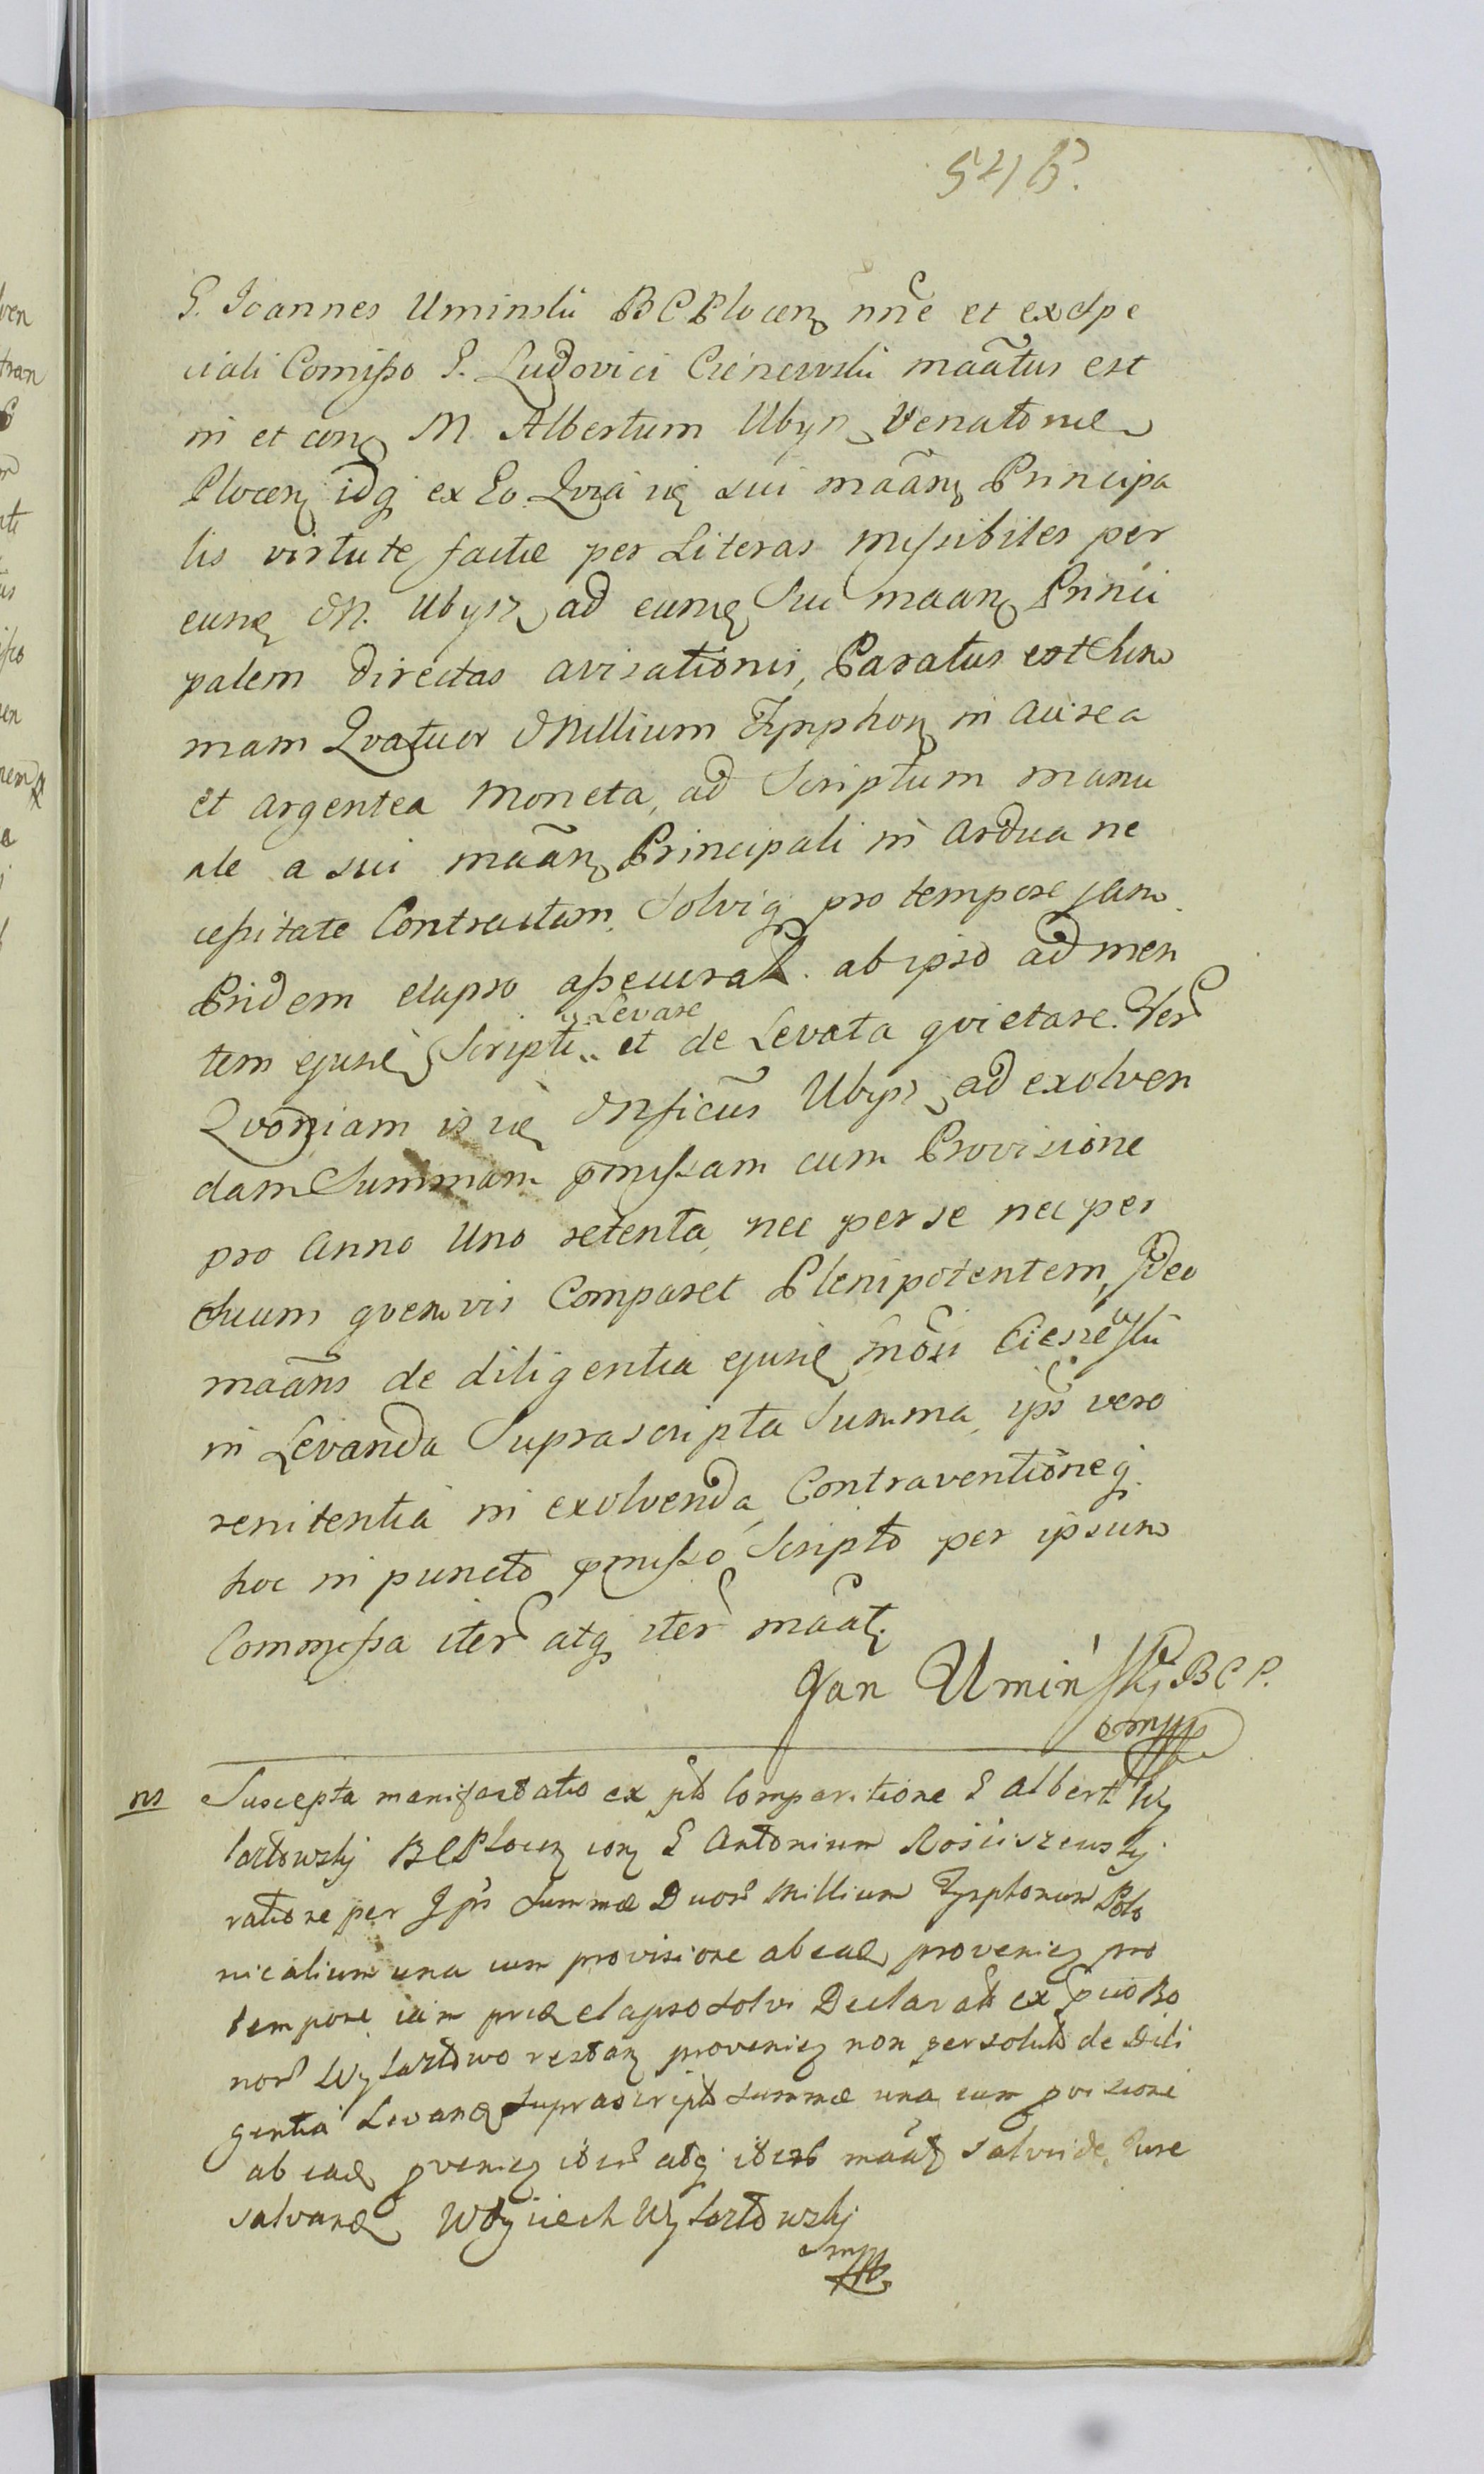 546.
G. Joannes Uminski BCPlocen nne et ex Spe
ciali Comisso G. Ludovici Cienewski maatus est
in et con M Albertum Ubysz Venatorne
Plocen idq ex Eo Qvia is sui maan Principa
lis virtute factae per Literas Missibiles per
eund M. Ubysz ad eumd Sui maan Princi
palem directas avisationis, Paratus est Sum
mam Qvatuor Millium Tynphon in aurea
et argentea Moneta, ad Scriptum manu
ale a sui maan Principali in ardua ne
cessitate Contractam, Solviq pro tempore jam
Pridem elapso assecurat. ab ipso ad men
tem ejusd Scripti et de Levata qvietare. Ver
Levare
Qvoniam is id Mficus Ubysz ad exolven
dam Summam pmissam cum Provisione
pro Anno Uno retenta, nec per se nec per
Suum qvemvis Comparet Plenipotentem, Ideo
maans de diligentia ejusd Mosi Cienewski
in Levanda Suprascripta Summa, ips vero
renitentia in exolvenda Contraventioneq
hoc in puncto pmisso Scripto per ipsum
Commissa iter atq iter maat.
Jan Umiński BCP.
mpp
ns Suscepta manifestatio ex pto Comparitione G Alberti Wy
lazłowski BCPlocen con G Antonium Rościszewski
ratione per Ips Summae Duor Millium Tynphonum Polo
nicalium una cum provisione ab ead provenien pro
tempore iam prid elapso Solvi Declarat ex
nor Wylazłowo restan provenien non persolut de Dili
gentia Levand Suprascript Summae una cum pvisione
ab ead pvenien iter atq iter maat Salvis de Jure
salvand Woyciech Wylazłowski
mpp